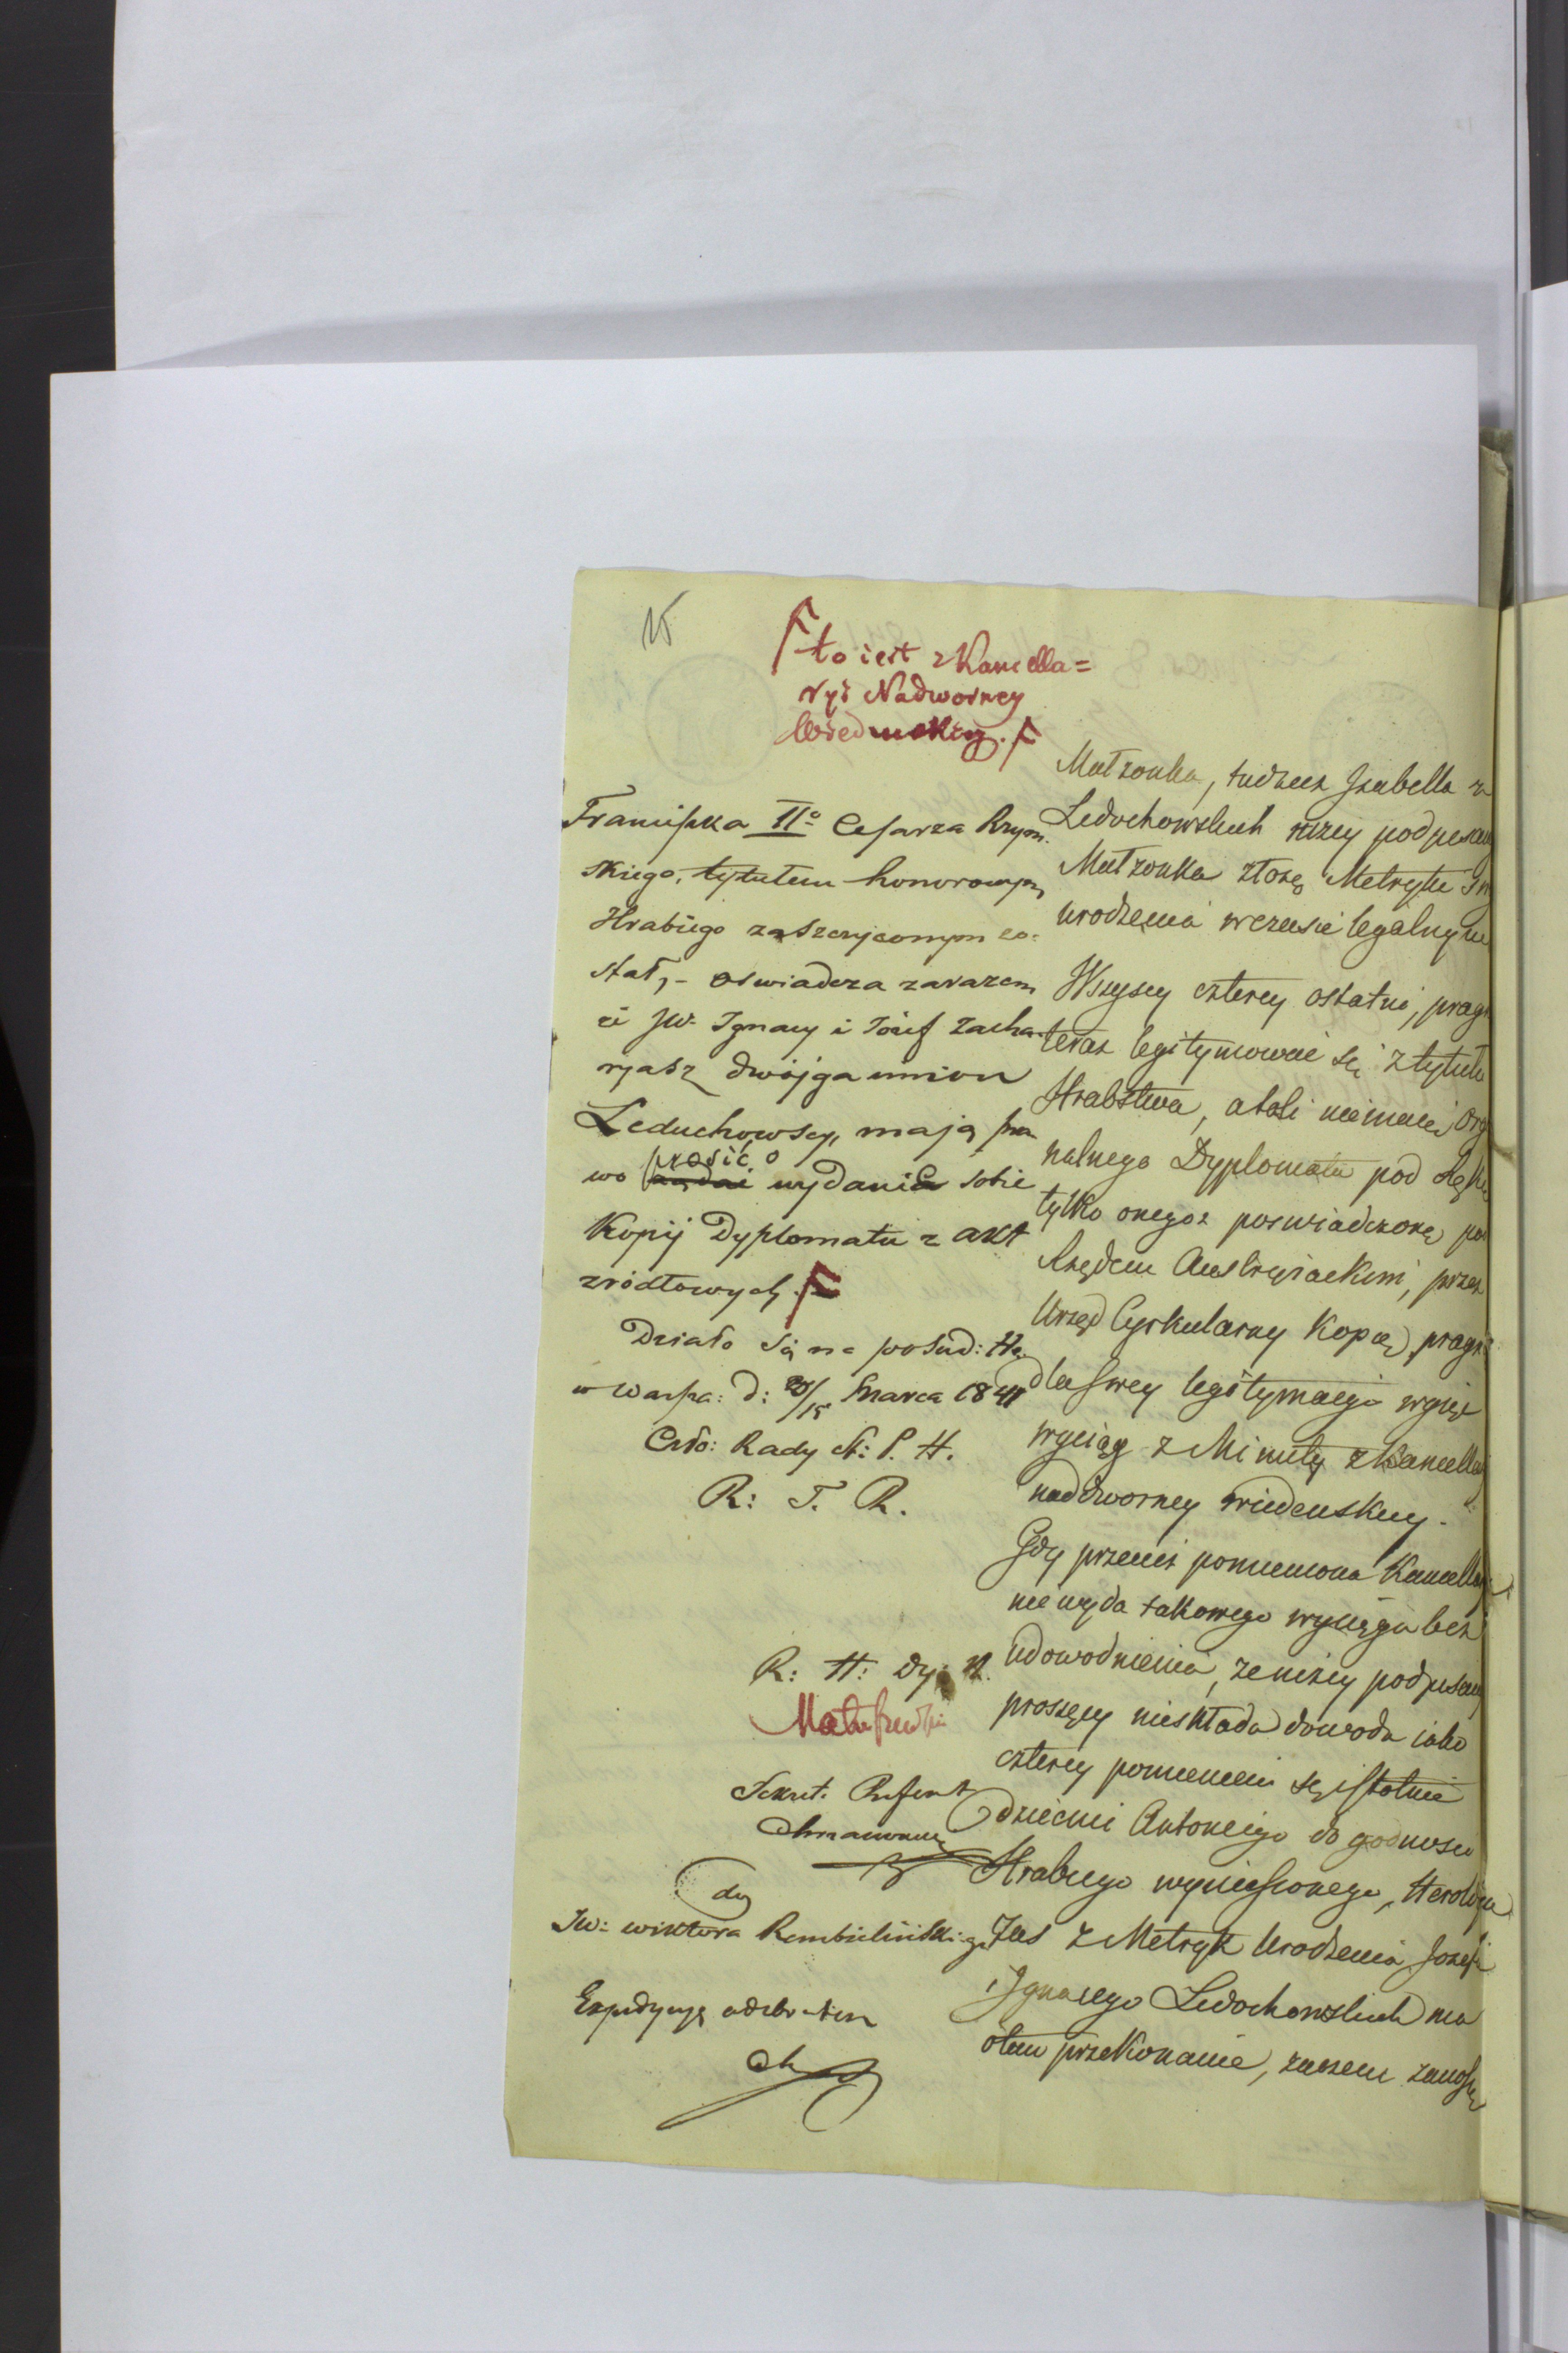 15
to iest z Kancella=
ryi Nadworney
Wiedenskiey.
Franciszka IIo Cesarza Rzym.
skiego, tytułem honorowym
Hrabiego zaszczyconym zo=
stał, - oświadcza zarazem
iż JW. Ignacy i Józef Zacha=
ryasz dwojga imion
Leduchowscy, mają pra
wo prosić o wydanie sobie
Kopij Dyplomatu z akt
zródłowych.
Działo się na posied: He.
w Warsza: d: 20/15 Marca 1841
Czło: Rady St: P. H.
R: T. R.
R: H: Dy: K.
Sekret. Referent
do
JW: Wiktora Rembielińskiego
Expedycyą odebrałem
Małżonka, tudzież Izabella z
Ledochowskich niżey podpisany
Małżonka złożę Metrykę
urodzenia w czasie legalnym
Wszyscy czterey ostatni, prag
teraz legitymować się z tytułu
Hrabstwa, atoli niemaiąc Ory
nalnego Dyplomatu pod ręką
tylko onegoż poswiadczoną po
Rządem Austryiackim, przez
Urząd Cyrkularny Kopię, pragn
dla swey legitymacyi wyiąć
wyciąg z Minuty z Kancellary
nadworney wiedenskiey.
Gdy przecież pomieniona Kancellarya
nie wyda takowego wyciągu bez
udowodnienia, że niżey podpisany
proszący nieskłada dowodu iako
czterey pomienieni są istotnie
dziećmi Antoniego do godności
Hrabiego wyniesionego, Heroldya
zaś z Metryk Urodzenia Józefa
i Ignacego Ledochowskich ma
o tem przekonanie, zaczem zanoszę